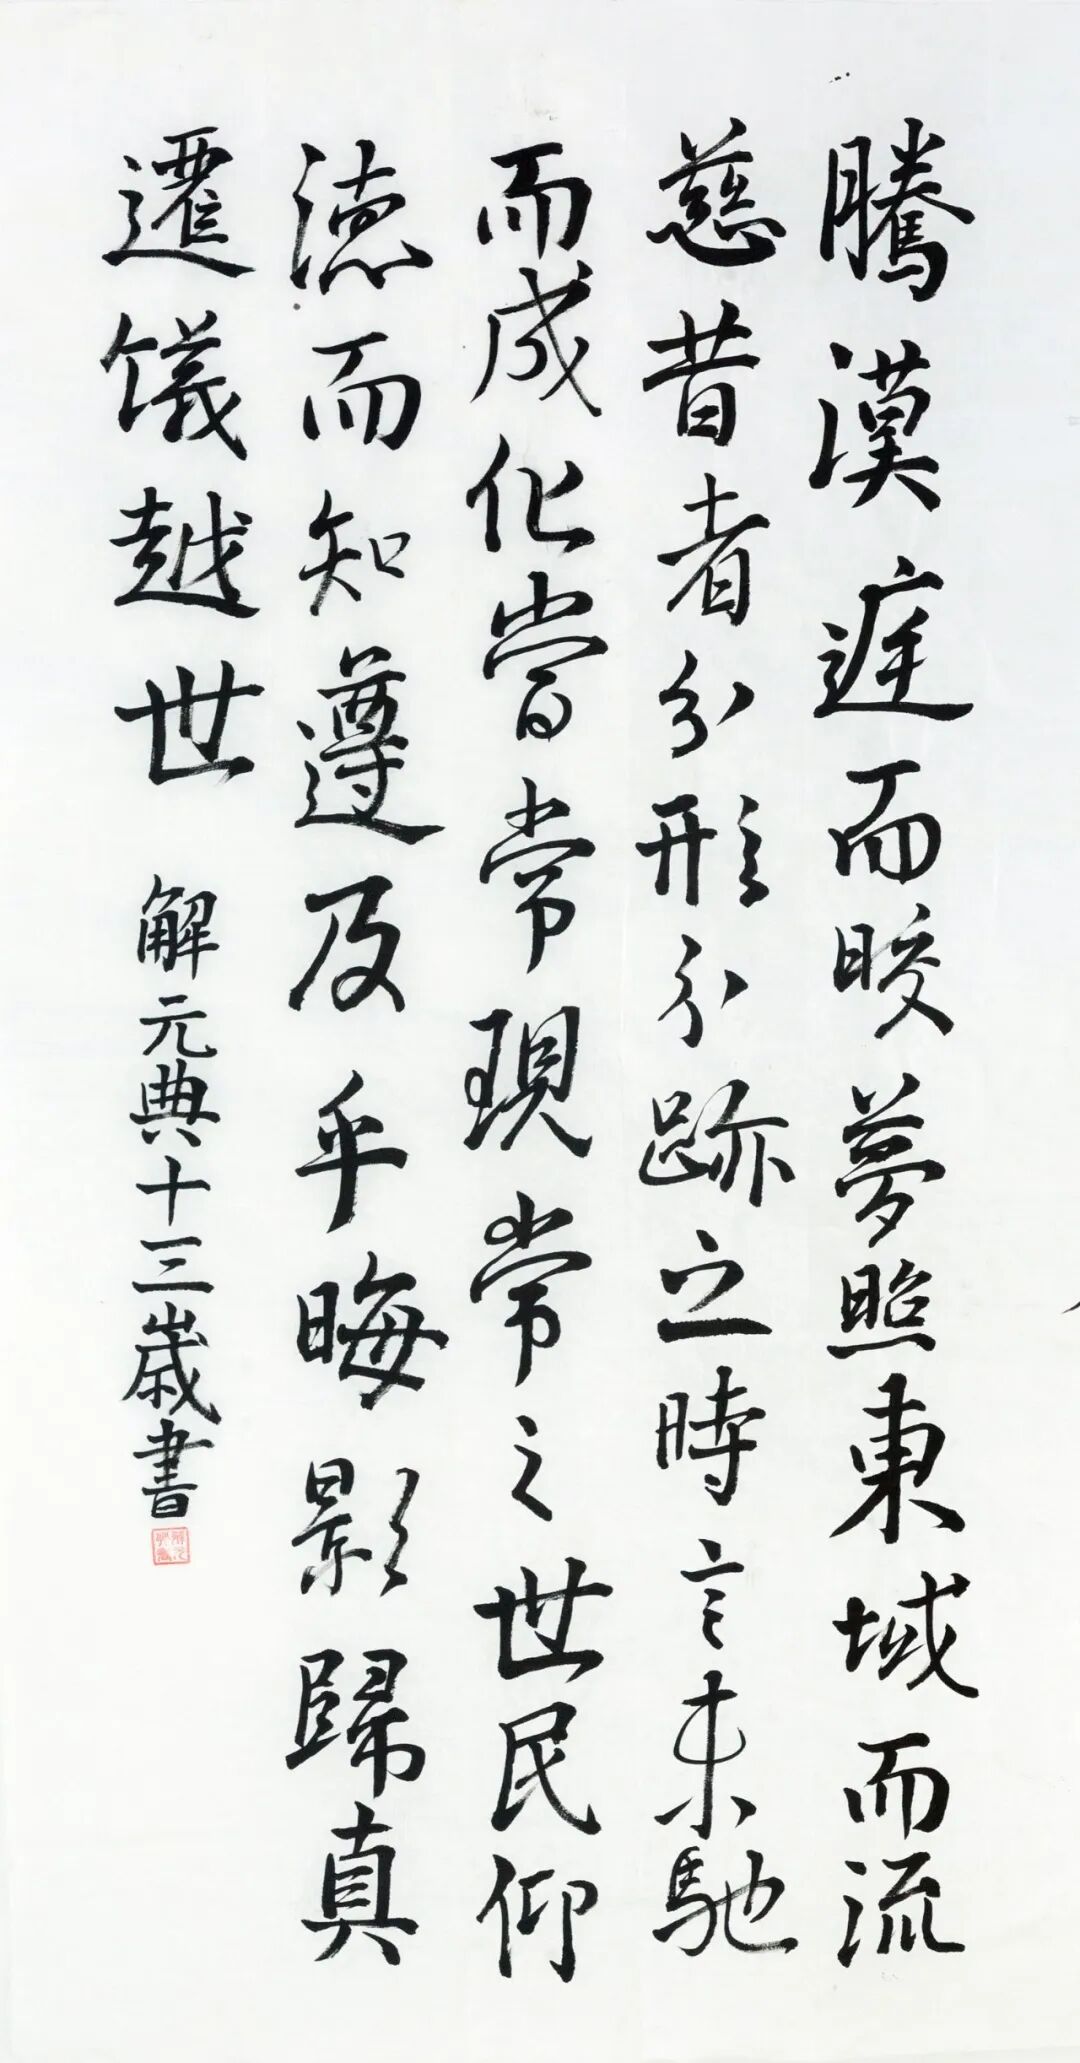 騰漢庭而皎夢照東域而流
慈昔者分形分跡之時言未馳
而成化當常現常之世民仰
德而知遵及乎晦影歸真
遷儀越世 解元典十三歲書